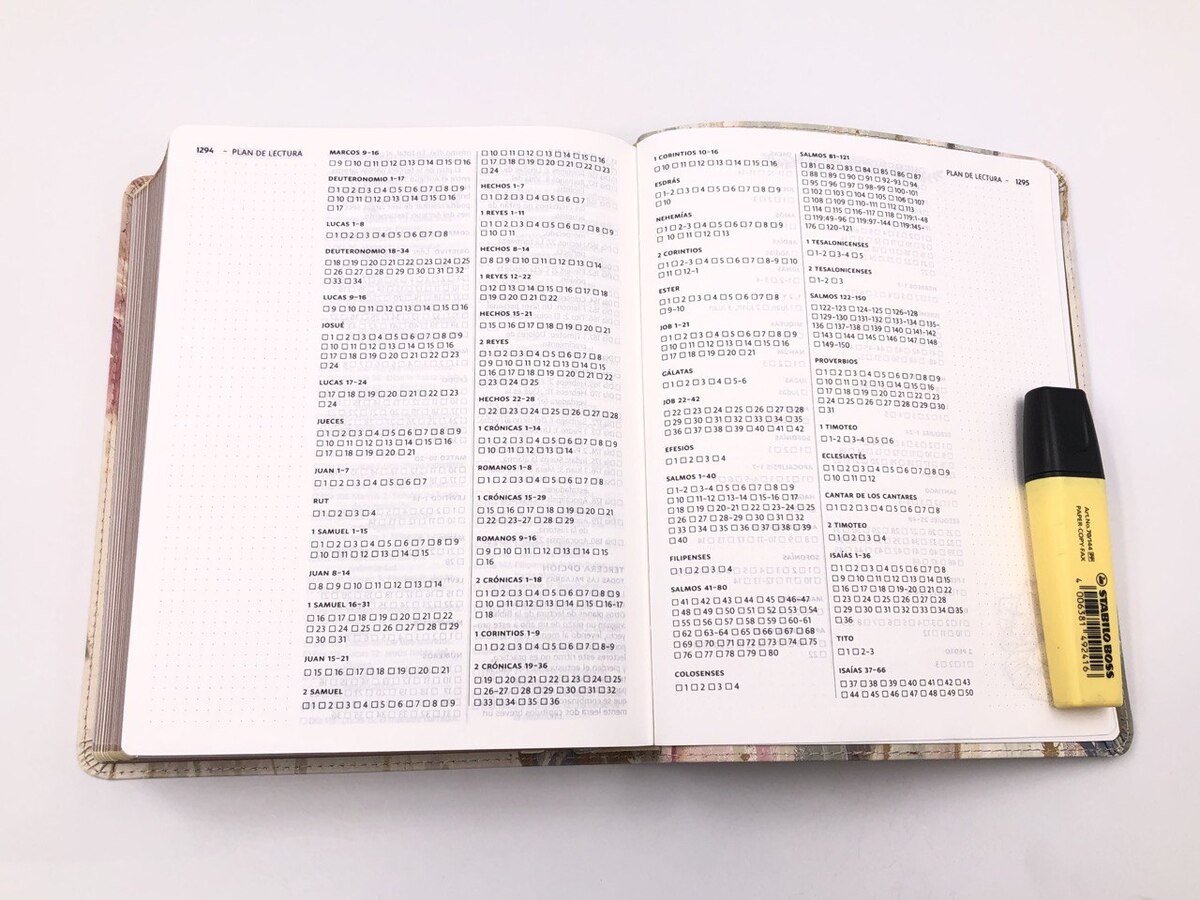 1294 - PLAN DE LECTURA
MARCOS 9-16
☐ 9 ☐ 10 ☐ 11 ☐ 12 ☐ 13 ☐ 14 ☐ 15 ☐ 16
DEUTERONOMIO 1-17
☐ 1 ☐ 2 ☐ 3 ☐ 4 ☐ 5 ☐ 6 ☐ 7 ☐ 8 ☐ 9
☐ 10 ☐ 11 ☐ 12 ☐ 13 ☐ 14 ☐ 15 ☐ 16
☐ 17
LUCAS 1-8
☐ 1 ☐ 2 ☐ 3 ☐ 4 ☐ 5 ☐ 6 ☐ 7 ☐ 8
DEUTERONOMIO 18-34
☐ 18 ☐ 19 ☐ 20 ☐ 21 ☐ 22 ☐ 23 ☐ 24 ☐ 25
☐ 26 ☐ 27 ☐ 28 ☐ 29 ☐ 30 ☐ 31 ☐ 32
☐ 33 ☐ 34
LUCAS 9-16
☐ 9 ☐ 10 ☐ 11 ☐ 12 ☐ 13 ☐ 14 ☐ 15 ☐ 16
JOSUÉ
☐ 1 ☐ 2 ☐ 3 ☐ 4 ☐ 5 ☐ 6 ☐ 7 ☐ 8 ☐ 9
☐ 10 ☐ 11 ☐ 12 ☐ 13 ☐ 14 ☐ 15 ☐ 16
☐ 17 ☐ 18 ☐ 19 ☐ 20 ☐ 21 ☐ 22 ☐ 23
☐ 24
LUCAS 17-24
☐ 17 ☐ 18 ☐ 19 ☐ 20 ☐ 21 ☐ 22 ☐ 23
☐ 24
JUECES
☐ 1 ☐ 2 ☐ 3 ☐ 4 ☐ 5 ☐ 6 ☐ 7 ☐ 8 ☐ 9
☐ 10 ☐ 11 ☐ 12 ☐ 13 ☐ 14 ☐ 15 ☐ 16
☐ 17 ☐ 18 ☐ 19 ☐ 20 ☐ 21
JUAN 1-7
☐ 1 ☐ 2 ☐ 3 ☐ 4 ☐ 5 ☐ 6 ☐ 7
RUT
☐ 1 ☐ 2 ☐ 3 ☐ 4
1 SAMUEL 1-15
☐ 1 ☐ 2 ☐ 3 ☐ 4 ☐ 5 ☐ 6 ☐ 7 ☐ 8 ☐ 9
☐ 10 ☐ 11 ☐ 12 ☐ 13 ☐ 14 ☐ 15
JUAN 8-14
☐ 8 ☐ 9 ☐ 10 ☐ 11 ☐ 12 ☐ 13 ☐ 14
1 SAMUEL 16-31
☐ 16 ☐ 17 ☐ 18 ☐ 19 ☐ 20 ☐ 21 ☐ 22
☐ 23 ☐ 24 ☐ 25 ☐ 26 ☐ 27 ☐ 28 ☐ 29
☐ 30 ☐ 31
JUAN 15-21
☐ 15 ☐ 16 ☐ 17 ☐ 18 ☐ 19 ☐ 20 ☐ 21
2 SAMUEL
☐ 1 ☐ 2 ☐ 3 ☐ 4 ☐ 5 ☐ 6 ☐ 7 ☐ 8 ☐ 9
☐ 10 ☐ 11 ☐ 12 ☐ 13 ☐ 14 ☐ 15 ☐ 16
☐ 17 ☐ 18 ☐ 19 ☐ 20 ☐ 21 ☐ 22 ☐ 23
☐ 24
HECHOS 1-7
☐ 1 ☐ 2 ☐ 3 ☐ 4 ☐ 5 ☐ 6 ☐ 7
1 REYES 1-11
☐ 1 ☐ 2 ☐ 3 ☐ 4 ☐ 5 ☐ 6 ☐ 7 ☐ 8 ☐ 9
☐ 10 ☐ 11
HECHOS 8-14
☐ 8 ☐ 9 ☐ 10 ☐ 11 ☐ 12 ☐ 13 ☐ 14
1 REYES 12-22
☐ 12 ☐ 13 ☐ 14 ☐ 15 ☐ 16 ☐ 17 ☐ 18
☐ 19 ☐ 20 ☐ 21 ☐ 22
HECHOS 15-21
☐ 15 ☐ 16 ☐ 17 ☐ 18 ☐ 19 ☐ 20 ☐ 21
2 REYES
☐ 1 ☐ 2 ☐ 3 ☐ 4 ☐ 5 ☐ 6 ☐ 7 ☐ 8
☐ 9 ☐ 10 ☐ 11 ☐ 12 ☐ 13 ☐ 14 ☐ 15
☐ 16 ☐ 17 ☐ 18 ☐ 19 ☐ 20 ☐ 21 ☐ 22
☐ 23 ☐ 24 ☐ 25
HECHOS 22-28
☐ 22 ☐ 23 ☐ 24 ☐ 25 ☐ 26 ☐ 27 ☐ 28
1 CRÓNICAS 1-14
☐ 1 ☐ 2 ☐ 3 ☐ 4 ☐ 5 ☐ 6 ☐ 7 ☐ 8 ☐ 9
☐ 10 ☐ 11 ☐ 12 ☐ 13 ☐ 14
ROMANOS 1-8
☐ 1 ☐ 2 ☐ 3 ☐ 4 ☐ 5 ☐ 6 ☐ 7 ☐ 8
1 CRÓNICAS 15-29
☐ 15 ☐ 16 ☐ 17 ☐ 18 ☐ 19 ☐ 20 ☐ 21
☐ 22 ☐ 23-27 ☐ 28 ☐ 29
ROMANOS 9-16
☐ 9 ☐ 10 ☐ 11 ☐ 12 ☐ 13 ☐ 14 ☐ 15
☐ 16
2 CRÓNICAS 1-18
☐ 1 ☐ 2 ☐ 3 ☐ 4 ☐ 5 ☐ 6 ☐ 7 ☐ 8 ☐ 9
☐ 10 ☐ 11 ☐ 12 ☐ 13 ☐ 14 ☐ 15 ☐ 16-17
☐ 18
1 CORINTIOS 1-9
☐ 1 ☐ 2 ☐ 3 ☐ 4 ☐ 5 ☐ 6 ☐ 7 ☐ 8-9
2 CRÓNICAS 19-36
☐ 19 ☐ 20 ☐ 21 ☐ 22 ☐ 23 ☐ 24 ☐ 25
☐ 26-27 ☐ 28 ☐ 29 ☐ 30 ☐ 31 ☐ 32
☐ 33 ☐ 34 ☐ 35 ☐ 36
1 CORINTIOS 10-16
☐ 10 ☐ 11 ☐ 12 ☐ 13 ☐ 14 ☐ 15 ☐ 16
ESDRÁS
☐ 1-2 ☐ 3 ☐ 4 ☐ 5 ☐ 6 ☐ 7 ☐ 8 ☐ 9
☐ 10
NEHEMÍAS
☐ 1 ☐ 2-3 ☐ 4 ☐ 5 ☐ 6 ☐ 7 ☐ 8 ☐ 9
☐ 10 ☐ 11 ☐ 12 ☐ 13
2 CORINTIOS
☐ 1 ☐ 2-3 ☐ 4 ☐ 5 ☐ 6 ☐ 7 ☐ 8-9 ☐ 10
☐ 11 ☐ 12-1
ESTER
☐ 1 ☐ 2 ☐ 3 ☐ 4 ☐ 5 ☐ 6 ☐ 7 ☐ 8
☐ 9-10
JOB 1-21
☐ 1 ☐ 2 ☐ 3 ☐ 4 ☐ 5 ☐ 6 ☐ 7 ☐ 8 ☐ 9
☐ 10 ☐ 11 ☐ 12 ☐ 13 ☐ 14 ☐ 15 ☐ 16
☐ 17 ☐ 18 ☐ 19 ☐ 20 ☐ 21
GÁLATAS
☐ 1 ☐ 2 ☐ 3 ☐ 4 ☐ 5-6
JOB 22-42
☐ 22 ☐ 23 ☐ 24 ☐ 25 ☐ 26 ☐ 27 ☐ 28
☐ 29 ☐ 30 ☐ 31 ☐ 32 ☐ 33 ☐ 34 ☐ 35
☐ 36 ☐ 37 ☐ 38 ☐ 39 ☐ 40 ☐ 41 ☐ 42
EFESIOS
☐ 1 ☐ 2 ☐ 3 ☐ 4
SALMOS 1-40
☐ 1-2 ☐ 3-4 ☐ 5 ☐ 6 ☐ 7 ☐ 8 ☐ 9
☐ 10 ☐ 11-12 ☐ 13-14 ☐ 15-16 ☐ 17
☐ 18 ☐ 19 ☐ 20-21 ☐ 22 ☐ 23-24 ☐ 25
☐ 26 ☐ 27 ☐ 28-29 ☐ 30 ☐ 31 ☐ 32
☐ 33 ☐ 34 ☐ 35 ☐ 36 ☐ 37 ☐ 38 ☐ 39
☐ 40
FILIPENSES
☐ 1 ☐ 2 ☐ 3 ☐ 4
SALMOS 41-80
☐ 41 ☐ 42 ☐ 43 ☐ 44 ☐ 45 ☐ 46-47
☐ 48 ☐ 49 ☐ 50 ☐ 51 ☐ 52 ☐ 53 ☐ 54
☐ 55 ☐ 56 ☐ 57 ☐ 58 ☐ 59 ☐ 60-61
☐ 62 ☐ 63-64 ☐ 65 ☐ 66 ☐ 67 ☐ 68
☐ 69 ☐ 70 ☐ 71 ☐ 72 ☐ 73 ☐ 74 ☐ 75
☐ 76 ☐ 77 ☐ 78 ☐ 79 ☐ 80
COLOSENSES
☐ 1 ☐ 2 ☐ 3 ☐ 4
SALMOS 81-121
☐ 81 ☐ 82 ☐ 83 ☐ 84 ☐ 85 ☐ 86 ☐ 87
☐ 88 ☐ 89 ☐ 90 ☐ 91 ☐ 92-93 ☐ 94
☐ 95 ☐ 96 ☐ 97 ☐ 98-99 ☐ 100-101
☐ 102 ☐ 103 ☐ 104 ☐ 105 ☐ 106 ☐ 107
☐ 108 ☐ 109 ☐ 110-111 ☐ 112 ☐ 113
☐ 114 ☐ 115 ☐ 116-117 ☐ 118 ☐ 119:1-48
☐ 119:49-96 ☐ 119:97-144 ☐ 119:145-
176 ☐ 120-121
1 TESALONICENSES
☐ 1-2 ☐ 3-4 ☐ 5
2 TESALONICENSES
☐ 1-2 ☐ 3
SALMOS 122-150
☐ 122-123 ☐ 124-125 ☐ 126-128
☐ 129-130 ☐ 131-132 ☐ 133-134 ☐ 135-
136 ☐ 137-138 ☐ 139 ☐ 140 ☐ 141-142
☐ 143 ☐ 144 ☐ 145 ☐ 146 ☐ 147 ☐ 148
☐ 149-150
PROVERBIOS
☐ 1 ☐ 2 ☐ 3 ☐ 4 ☐ 5 ☐ 6 ☐ 7 ☐ 8 ☐ 9
☐ 10 ☐ 11 ☐ 12 ☐ 13 ☐ 14 ☐ 15 ☐ 16
☐ 17 ☐ 18 ☐ 19 ☐ 20 ☐ 21 ☐ 22 ☐ 23
☐ 24 ☐ 25 ☐ 26 ☐ 27 ☐ 28 ☐ 29 ☐ 30
☐ 31
1 TIMOTEO
☐ 1-2 ☐ 3-4 ☐ 5 ☐ 6
ECLESIASTÉS
☐ 1 ☐ 2 ☐ 3 ☐ 4 ☐ 5 ☐ 6 ☐ 7 ☐ 8 ☐ 9
☐ 10 ☐ 11 ☐ 12
CANTAR DE LOS CANTARES
☐ 1 ☐ 2 ☐ 3 ☐ 4 ☐ 5 ☐ 6 ☐ 7 ☐ 8
2 TIMOTEO
☐ 1 ☐ 2 ☐ 3 ☐ 4
ISAÍAS 1-36
☐ 1 ☐ 2 ☐ 3 ☐ 4 ☐ 5 ☐ 6 ☐ 7 ☐ 8
☐ 9 ☐ 10 ☐ 11 ☐ 12 ☐ 13 ☐ 14 ☐ 15
☐ 16 ☐ 17 ☐ 18 ☐ 19-20 ☐ 21 ☐ 22
☐ 23 ☐ 24 ☐ 25 ☐ 26 ☐ 27 ☐ 28
☐ 29 ☐ 30 ☐ 31 ☐ 32 ☐ 33 ☐ 34 ☐ 35
☐ 36
TITO
☐ 1 ☐ 2-3
ISAÍAS 37-66
☐ 37 ☐ 38 ☐ 39 ☐ 40 ☐ 41 ☐ 42 ☐ 43
☐ 44 ☐ 45 ☐ 46 ☐ 47 ☐ 48 ☐ 49 ☐ 50
PLAN DE LECTURA - 1295
Art.No.70/144
PAPER COPY FAX
STABILO BOSS
4 006381 492416